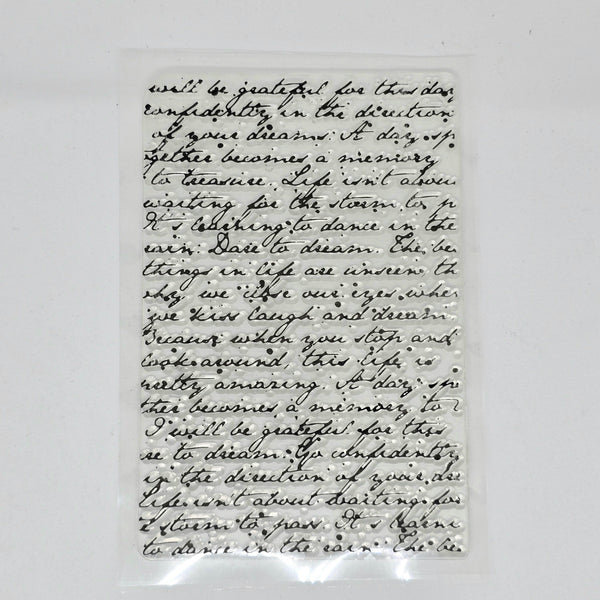 will be grateful for this day
confidently in the direction
of your dreams. A day sp
gether becomes a memory
to treasure. Life isn't abou
waiting for the storm to p
It's learning to dance in the
rain. Dare to dream. The be
things in life are unseen th
why we close our eyes when
we kiss laugh and dream.
Because when you stop and
look around, this life is
retty amazing. A day spe
ther becomes a memory to
I will be grateful for this
re to dream. Go confidently
in the direction of your dre
Life isn't about waiting for
e storm to pass. It's learni
to dance in the rain. The be